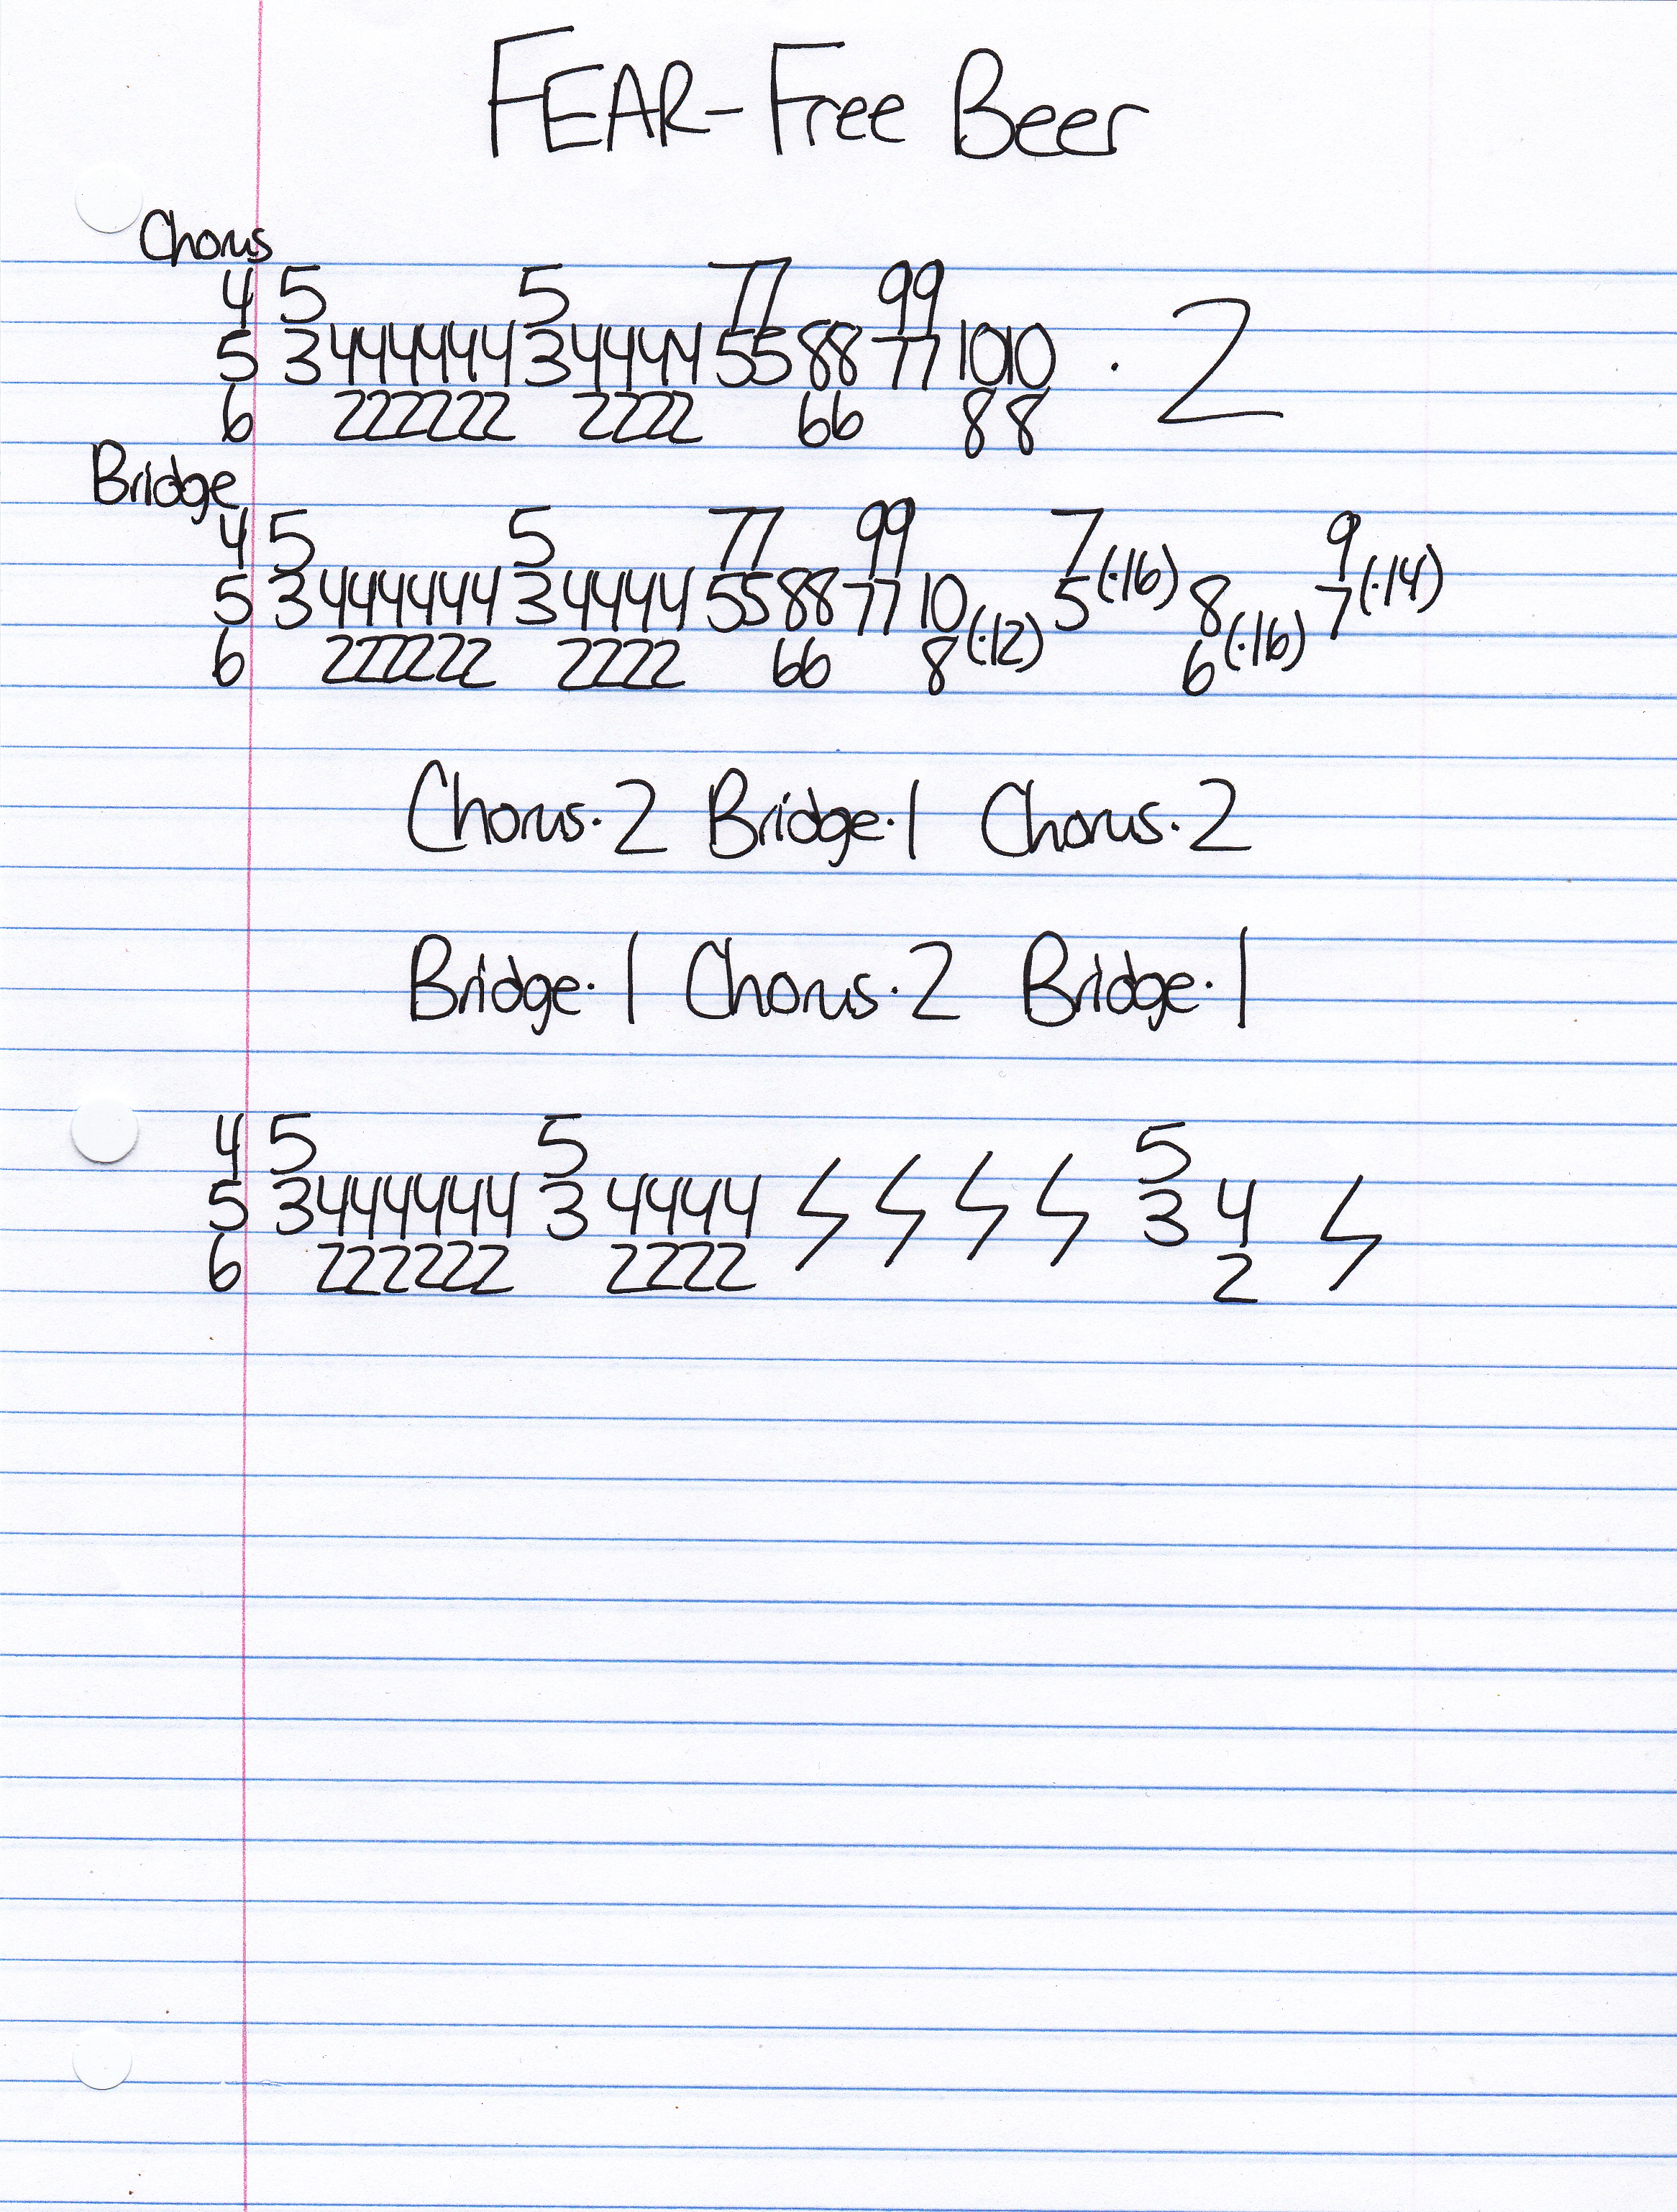 FEAR-Free Beer
Chorus
4 5 5 77 99
5 3444444 34444 55 88 77 1010 · 2
6 222222 2222 66 88
Bridge
4 5 5 77 99 7 9
5 3444444 34444 55 88 77 10 5(·16) 8 7(·14)
6 222222 2222 66 8(·12) 6(·16)
Chorus·2 Bridge·1 Chorus·2
Bridge·1 Chorus·2 Bridge·1
4 5 5 5
5 3444444 3 4444 3 4
6 222222 2222 2